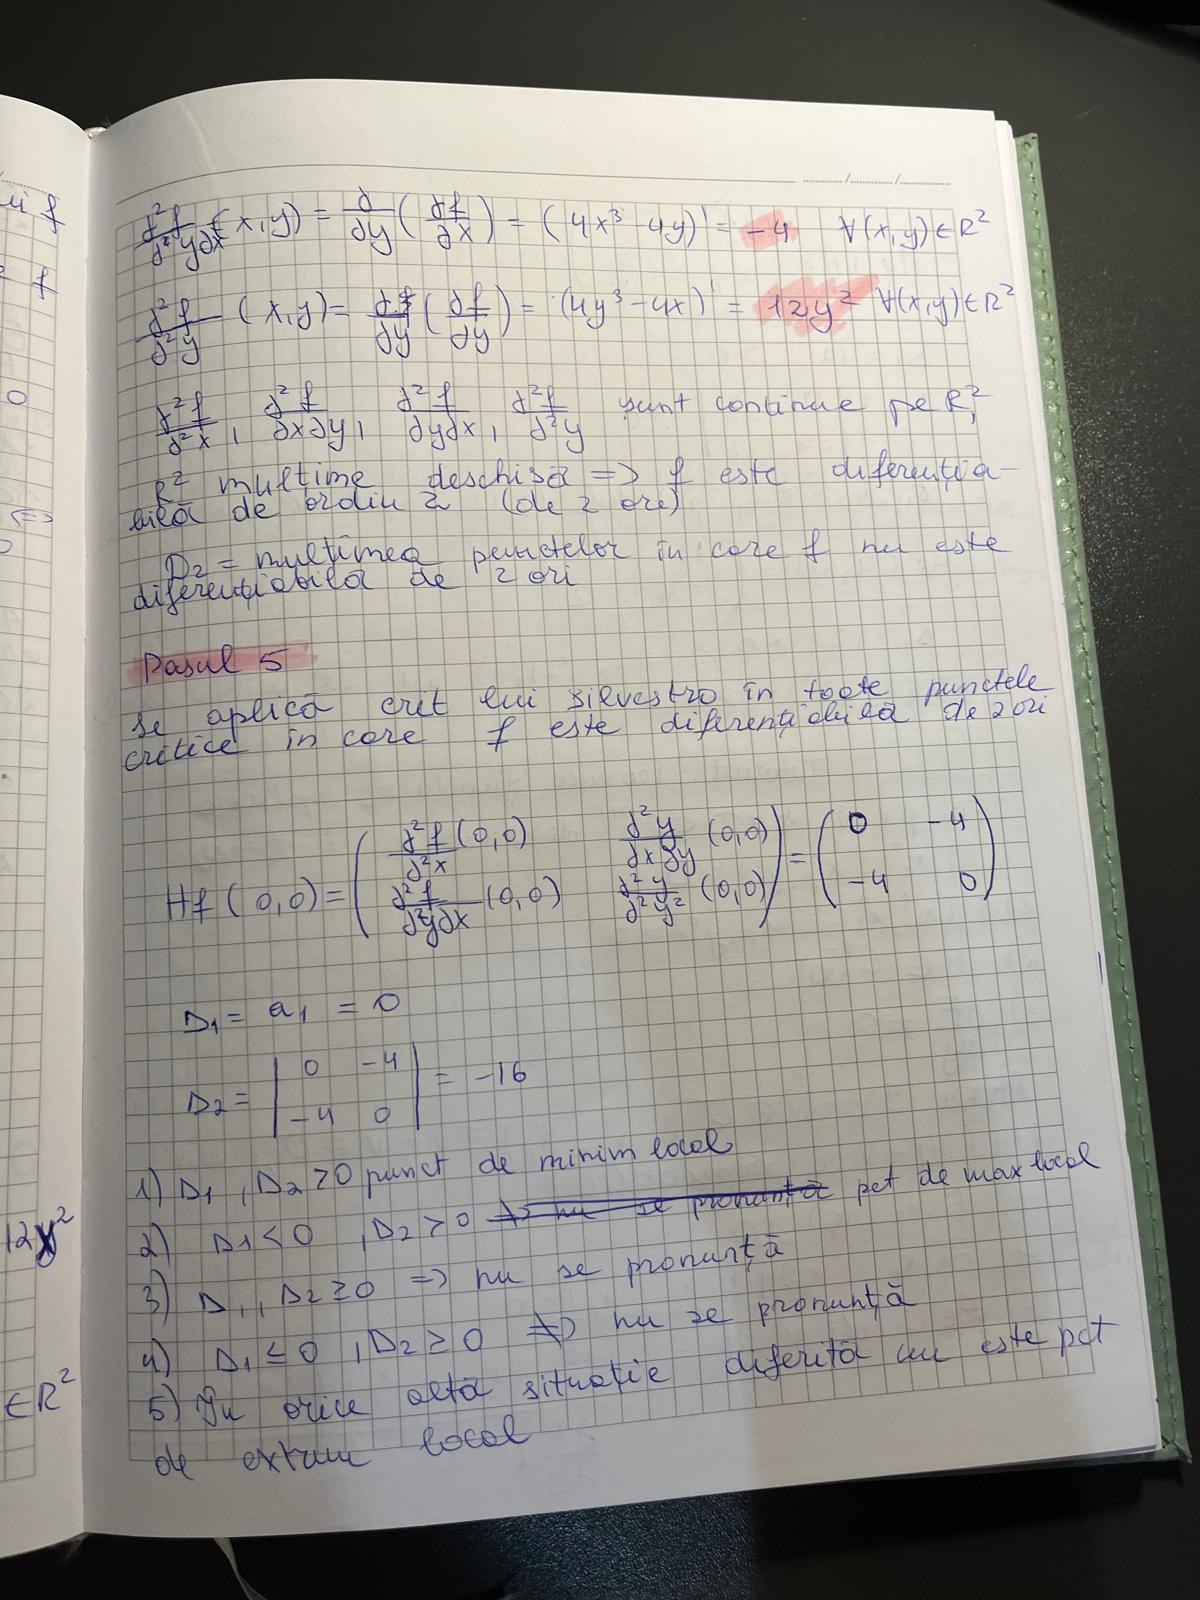 ∂²f/∂²y∂x (x,y) = ∂/∂y (∂f/∂x) = (4x³ - 4y)' = -4 ∀(x,y)∈R²
∂²f/∂²y (x,y) = ∂f/∂y (∂f/∂y) = (4y³ - 4x)' = 12y² ∀(x,y)∈R²
∂²f/∂²x, ∂²f/∂x∂y, ∂²f/∂y∂x, ∂²f/∂²y sunt continue pe R²,
R² multime deschisă => f este diferenția-
bilă de ordin 2 (de 2 ori)
D₂ = multimea punctelor în care f nu este
diferențiabilă de 2 ori
Pasul 5
se aplică crit lui silvestro în toate punctele
critice în care f este diferențiabilă de 2 ori
Hf(0,0) = ( ∂²f/∂²x (0,0) ∂²y/∂x∂y (0,0) ) = ( 0 -4 )
( ∂²f/∂²y∂x (0,0) ∂²y/∂²y² (0,0) ) ( -4 0 )
Δ₁ = a₁ = 0
Δ₂ = | 0 -4 | = -16
| -4 0 |
1) Δ₁, Δ₂ > 0 punct de minim local
2) Δ₁ < 0, Δ₂ > 0 => nu se pronunță pct de max local
3) Δ₁, Δ₂ ≥ 0 => nu se pronunță
4) Δ₁ ≤ 0, Δ₂ ≥ 0 => nu se pronunță
5) În orice altă situație diferită nu este pct
de extrem local
f
f
0
12y²
∈R²